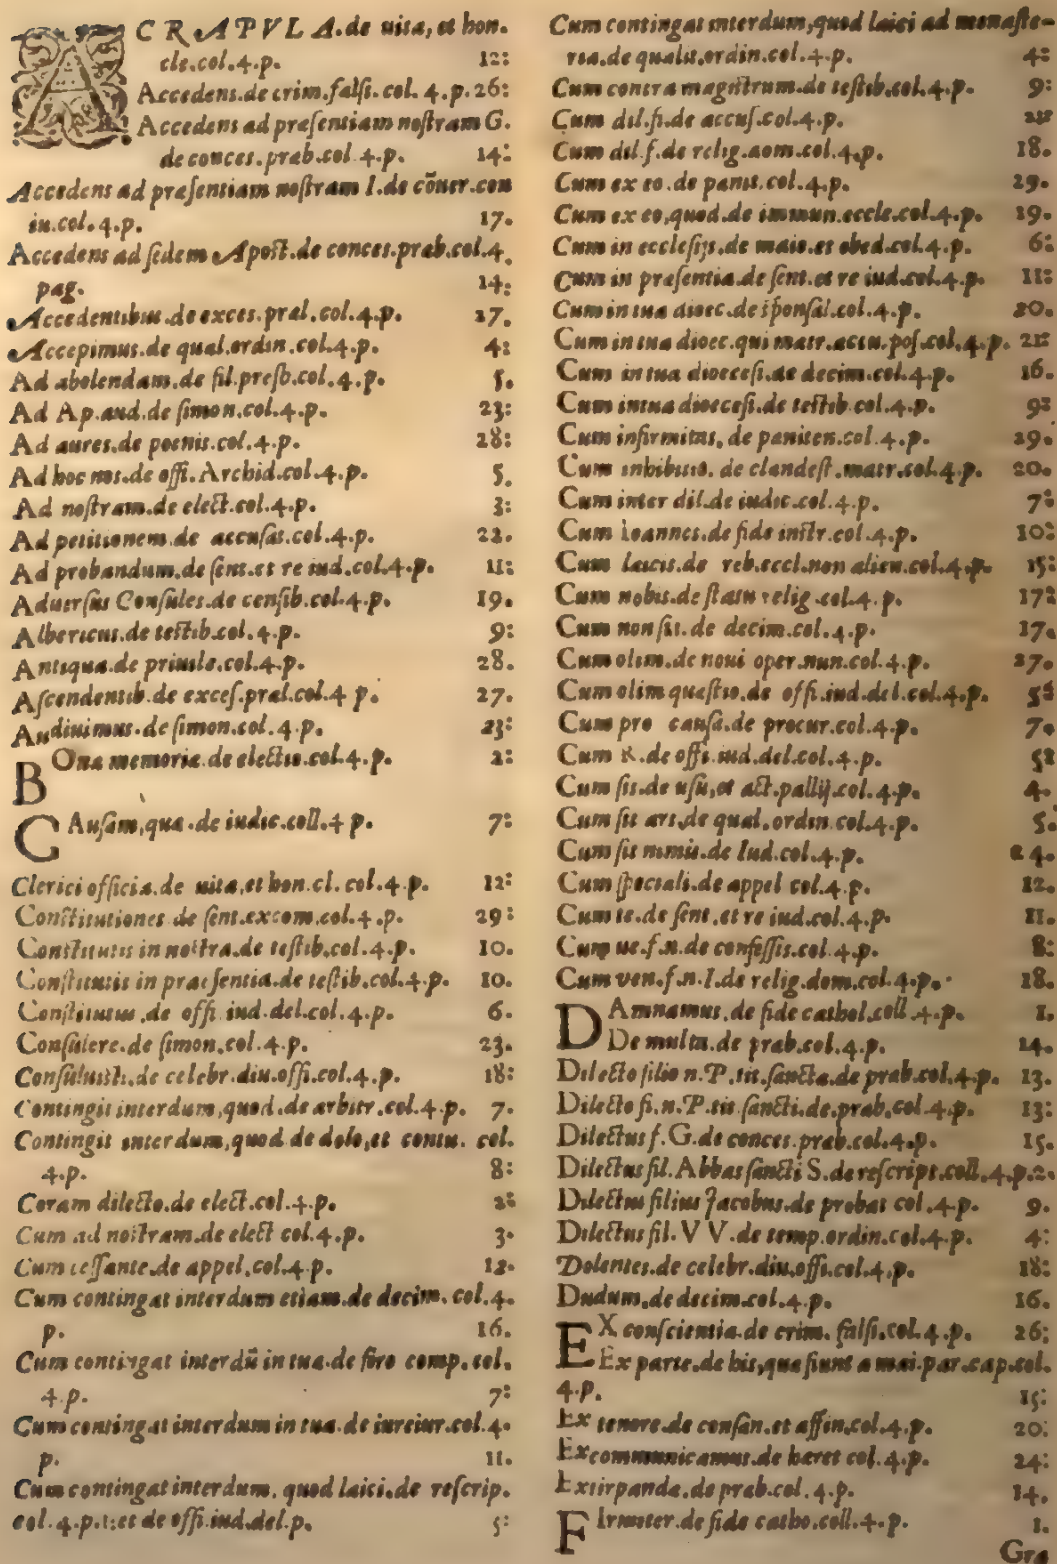 A CRAPVLA.de uita, et hon.
cle.col.4.p. 12:
Accedens.de crim.falsi.col. 4.p. 26:
Accedens ad præsentiam nostram G.
de conces.præb.col 4.p. 14:
Accedens ad præsentiam nostram I.de cōuer.con
iu.col.4.p. 17.
Accedens ad sedem Apost.de conces.præb.col.4.
pag. 14:
Accedentibus.de exces.præl.col.4.p. 27.
Accepimus.de qual.ordin.col.4.p. 4:
Ad abolendam.de fil.presb.col.4.p. 5.
Ad Ap.aud.de simon.col.4.p. 23:
Ad aures.de poenis.col.4.p. 28:
Ad hoc nos.de offi.Archid.col.4.p. 5.
Ad nostram.de elect.col.4.p. 3:
Ad petitionem.de accusat.col.4.p. 22.
Ad probandum.de sent.et re iud.col.4.p. 11:
Aduersus Consules.de censib.col.4.p. 19.
Albericus.de testib.col.4.p. 9:
Antiqua.de priuile.col.4.p. 28.
Ascendentib.de exces.præl.col.4 p. 27.
Audiuimus.de simon.col.4.p. 23:
BOna memoria.de electio.col.4.p. 2:
CAusam,quæ.de iudic.coll.4 p. 7:
Clerici officia.de uita,et hon.cl.col.4.p. 12:
Constitutiones de sent.excom.col.4.p. 29:
Constitutis in nostra.de testib.col.4.p. 10.
Constitutis in praesentia.de testib.col.4.p. 10.
Constitutus.de offi.iud.del.col.4.p. 6.
Consulere.de simon.col.4.p. 23.
Consuluisti.de celebr.diu.offi.col.4.p. 18:
Contingit interdum,quod.de arbitr.col.4.p. 7.
Contingit interdum,quod de dolo,et contu. col.
4.p. 8:
Coram dilecto.de elect.col.4.p. 2:
Cum ad nostram.de elect col.4.p. 3.
Cum cessante.de appel.col.4.p. 12.
Cum contingat interdum etiam.de decim.col.4.
p. 16.
Cum contingat interdū in tua.de foro comp.col.
4.p. 7:
Cum contingat interdum in tua.de iureiur.col.4.
p. 11.
Cum contingat interdum, quod laici.de rescrip.
col.4.p. et de offi.iud.del.p. 5:
Cum contingat interdum,quod laici ad monaste-
ria.de qualit.ordin.col.4.p. 4:
Cum contra magistrum.de testib.col.4.p. 9:
Cum dil.fi.de accus.col.4.p.
Cum dil.f.de relig.dom.col.4.p. 18.
Cum ex eo.de pœnis.col.4.p. 29.
Cum ex eo,quod.de immun.eccle.col.4.p. 19.
Cum in ecclesijs.de maio.et obed.col.4.p. 6:
Cum in præsentia.de sent.et re iud.col.4.p. 11:
Cum in tua dioec.de sponsal.col.4.p. 20.
Cum in tua dioec.qui matr.accu.pos.col.4.p. 21:
Cum in tua dioecesi.de decim.col.4.p. 16.
Cum in tua dioecesi.de testib.col.4.p. 9:
Cum infirmitas, de pœniten.col.4.p. 29.
Cum inhibitio. de clandest.matr.col.4.p. 20.
Cum inter dil.de iudic.col.4.p. 7:
Cum Ioannes.de fide instr.col.4.p. 10:
Cum laicis.de reb.eccl.non alien.col.4.p. 15:
Cum nobis.de statu relig.col.4.p. 17:
Cum non sit.de decim.col.4.p. 17.
Cum olim.de noui oper.nun.col.4.p. 27.
Cum olim quæstio.de offi.iud.del.col.4.p. 5:
Cum pro causa.de procur.col.4.p. 7.
Cum R.de offi.iud.del.col.4.p. 5:
Cum sis.de usu,et act.pallij.col.4.p. 4.
Cum sit ars.de qual.ordin.col.4.p. 5.
Cum sit nimis.de Iud.col.4.p. 24.
Cum speciali.de appel col.4.p. 12.
Cum te.de sent.et re iud.col.4.p. 11.
Cum ue.f.n.de confessis.col.4.p. 8:
Cum ven.f.n.I.de relig.dom.col.4.p. 18.
DAmnamus.de fide cathol.coll.4.p. 1.
De multa.de præb.col.4.p. 14.
Dilecto filio n.P.tit.sancta.de præb.col.4.p. 13.
Dilecto fi.n.P.tit sancti.de.præb.col.4.p. 13:
Dilectus f.G.de conces.præb.col.4.p. 15.
Dilectus fil.Abbas sancti S.de rescript.coll.4.p.2.
Dilectus filius Jacobus.de probat col.4.p. 9.
Dilectus fil.VV.de temp.ordin.col.4.p. 4:
Dolentes.de celebr.diu.offi.col.4.p. 18:
Dudum.de decim.col.4.p. 16.
EX conscientia.de crim.falsi.col.4.p. 26:
Ex parte.de his,quæ fiunt a mai.par.cap.col.
4.p. 15:
Ex tenore.de consan.et affin.col.4.p. 20:
Excommunicamus.de hæret col.4.p. 24:
Extirpanda.de præb.col.4.p. 14.
FIrmiter.de fide catho.coll.4.p. 1.
Gra